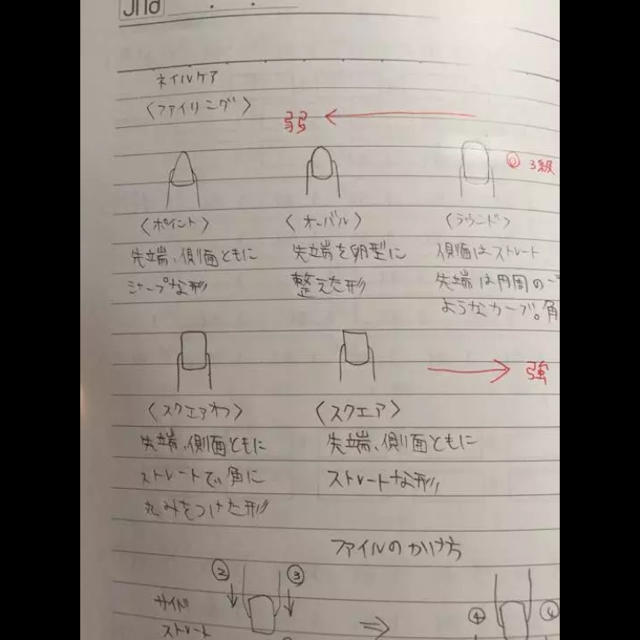 Jna
ネイルケア
〈ファイリング〉
弱
① 3級
〈ポイント〉 〈オーバル〉 〈ラウンド〉
先端、側面ともに 先端を卵型に 側面はストレート
シャープな形 整えた形 先端は円周の一
ようなカーブ。角
強
〈スクエアオフ〉 〈スクエア〉
先端、側面ともに 先端、側面ともに
ストレートで、角に ストレートな形
丸みをつけた形
ファイルのかけ方
② ③
サイド
ストレート
④